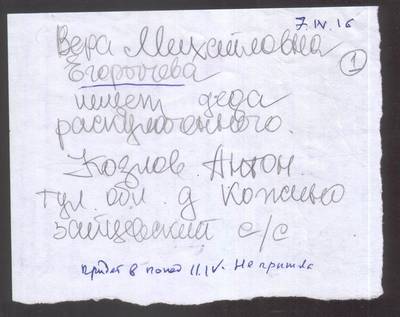 7.IV.16
Вера Михайловна
Егорычева
1
ищет деда
раскулаченного.
Козлов Антон.
тул. обл. д Кожино
зайцевский с/с
придет в понед 11.IV. Не пришла